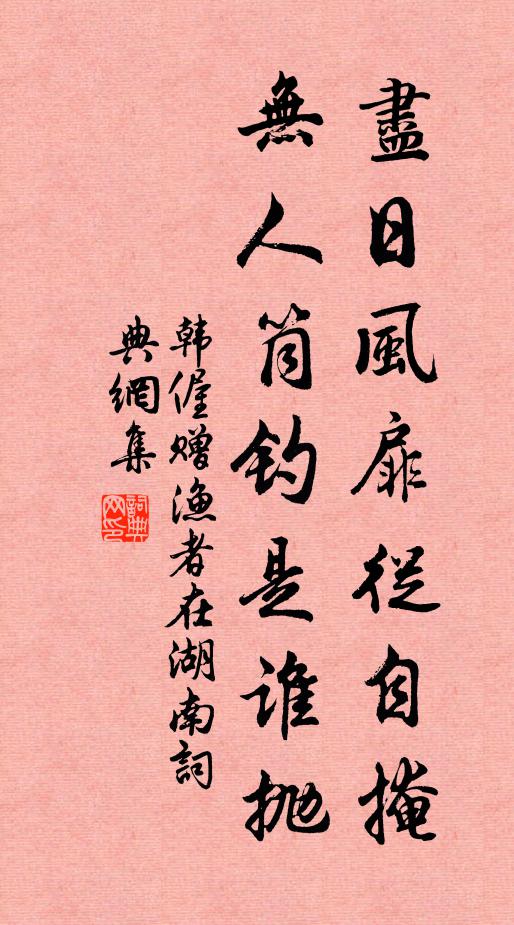 盡日風扉從自掩
無人筒釣是誰拋
韩偓赠漁者在湖南詞
典網集
詞典网印